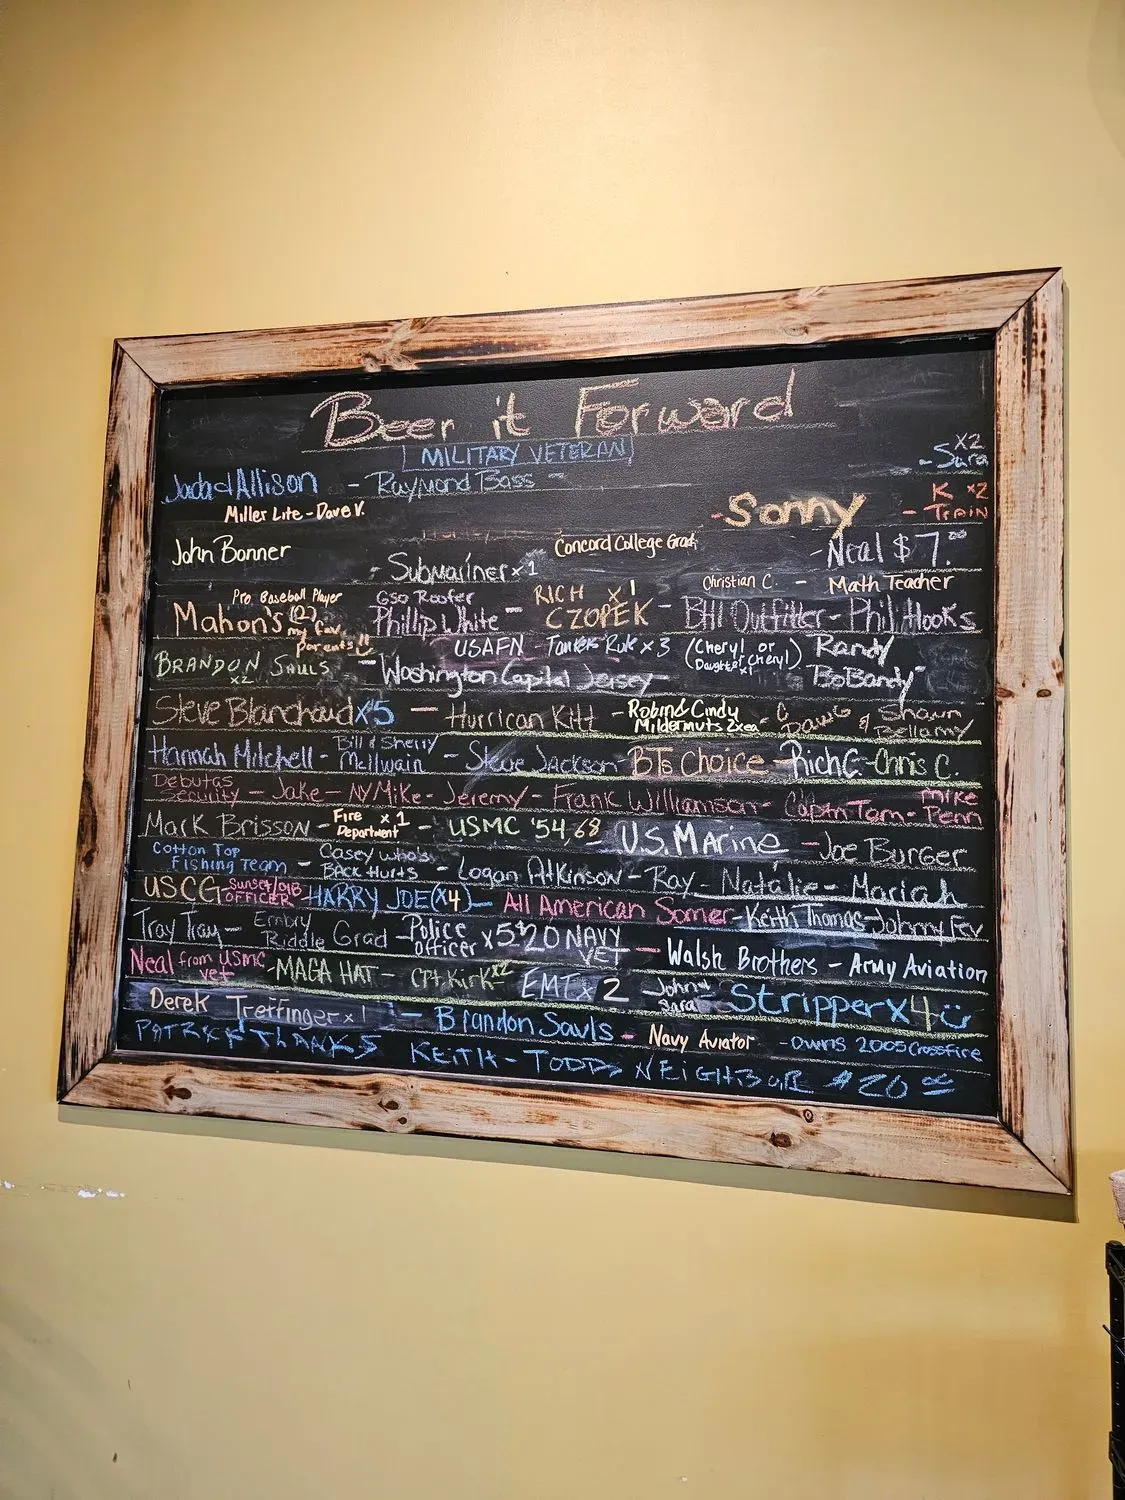 Beer it Forward
MILITARY VETERAN
x2
- Sara
Jada d Allison - Raymond Bass -
K x2
Miller Lite - Dave V.
- Sonny - Train
John Bonner
Concord College Grad
- Neal $7.00
- Submariner x1
Christian C. - Math Teacher
Pro Baseball Player
GSO Roofer
RICH x1
Mahon's (2) my fav parents!!
Phillip White - CZOPEK - BHI Outfitter - Phil Hooks
USAFN - Tanker Ruk x3 (Cheryl or Daughter of Cheryl) x1 Randy
BRANDON SAULS x2 - Washington Capital Jersey - BoBandy
Steve Blanchard x5 - Hurrican Kitt - Robin & Cindy Mildermuts 2xea - C Dawg & Shawn Bellamy
Hannah Mitchell - Bill & Sherry McIlwain - Steve Jackson - BTs Choice - Rich C - Chris C.
Debutas Security - Jake - NY Mike - Jeremy - Frank Williamson - Captn Tom - Mike Penn
Mark Brisson - Fire Department x1 - USMC '54, 68 U.S. Marine - Joe Burger
Cotton Top Fishing Team - Casey who's BACK Hurts - Logan Atkinson - Ray - Natalie - Mariah
USCG Sunset/OIB OFFICER HARRY JOE (x4) - All American Somer - Keith Thomas - Johnny Fev
Troy Troy - Embry Riddle Grad - Police officer x5 $20 NAVY VET - Walsh Brothers - Army Aviation
Neal from USMC vet - MAGA HAT - CPt Kirk x2 EMT x 2 John & Sara Stripper x4
Derek Treffinger x1 - Brandon Sauls - Navy Aviator - owns 2005 Crossfire
PATRICK THANKS KEITH - TODDS NEIGHBOUR $20 00